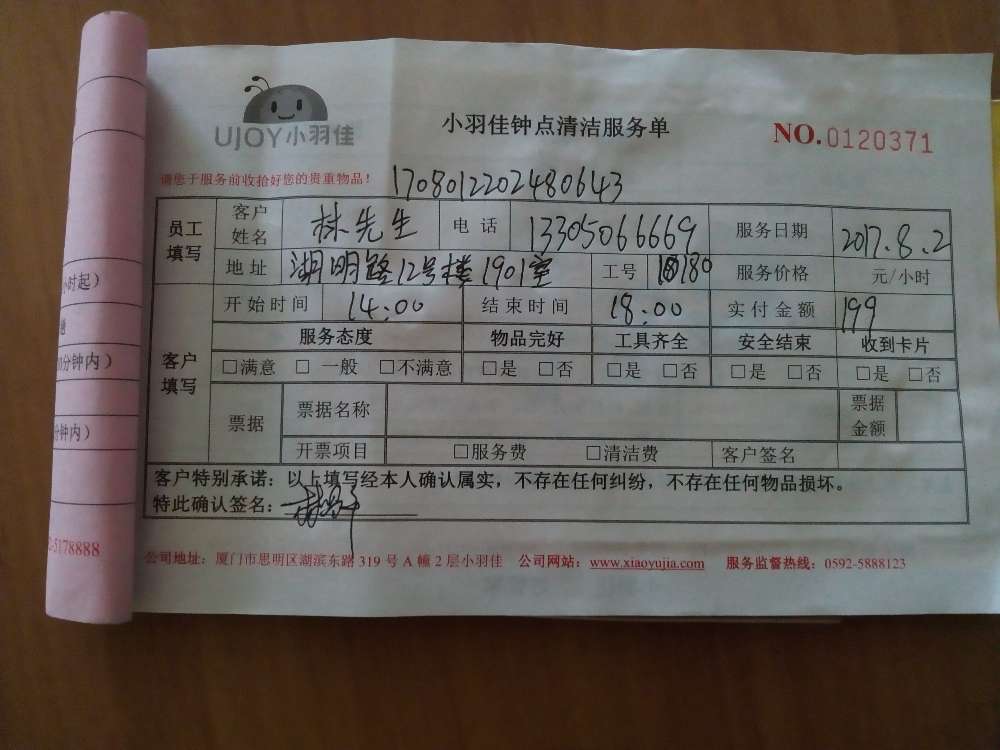 UJOY小羽佳
小羽佳钟点清洁服务单
NO.0120371
请您于服务前收拾好您的贵重物品！
1708012202480643
员工填写 客户姓名 林先生 电话 13305066669 服务日期 2017.8.2
地址 湖明路12号楼1901室 工号 180 服务价格 元/小时
客户填写 开始时间 14:00 结束时间 18:00 实付金额 199
服务态度 物品完好 工具齐全 安全结束 收到卡片
□满意 □一般 □不满意 □是 □否 □是 □否 □是 □否 □是 □否
票据 票据名称 票据金额
开票项目 □服务费 □清洁费 客户签名
客户特别承诺：以上填写经本人确认属实，不存在任何纠纷，不存在任何物品损坏。
特此确认签名：
公司地址：厦门市思明区湖滨东路 319 号 A 幢 2 层小羽佳 公司网站：www.xiaoyujia.com 服务监督热线：0592-5888123
小时起）
分钟内）
分钟内）
5178888